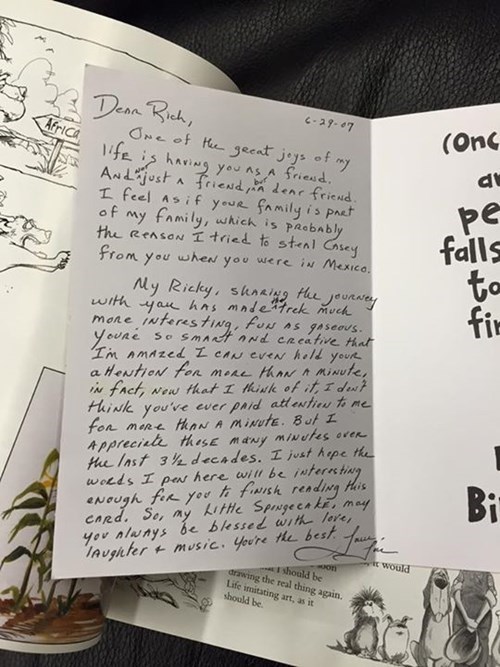 Africa
Dear Rich,
6-29-07
One of the great joys of my
life is having you as a friend.
And not just a friend, but a dear friend.
I feel as if your family is part
of my family, which is probably
the reason I tried to steal Casey
from you when you were in Mexico.
My Ricky, sharing the journey
with you has made the trek much
more interesting, fun as gaseous.
You're so smart and creative that
I'm amazed I can even hold your
attention for more than a minute,
in fact, now that I think of it, I don't
think you've ever paid attention to me
for more than a minute. But I
appreciate those many minutes over
the last 3 1/2 decades. I just hope the
words I pen here will be interesting
enough for you to finish reading this
card. So, my little Spongecake, may
you always be blessed with love,
laughter + music. You're the best.
(Onc
a
pe
falls
to
fir
Bi
soon
I should be
, it would
drawing the real thing again.
Life imitating art, as it
should be.